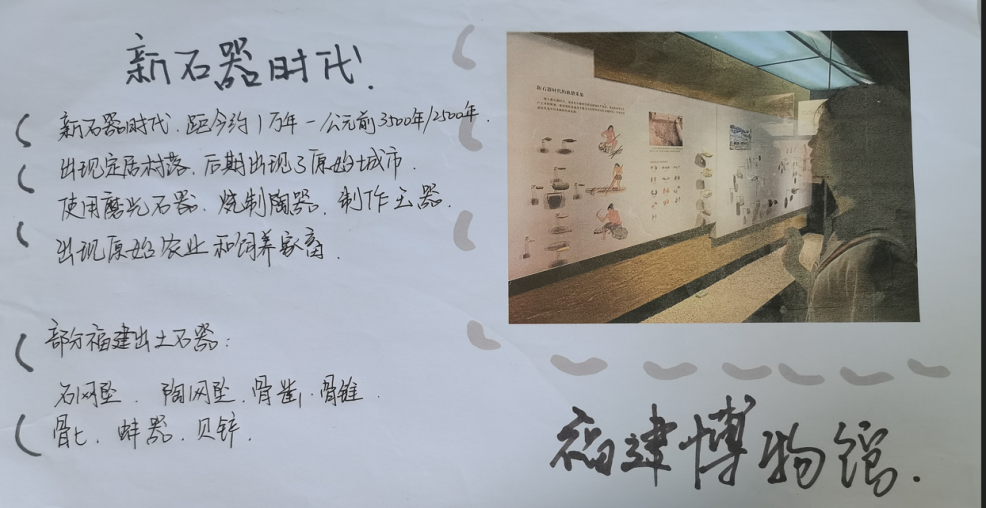 新石器时代.
新石器时代.距今约1万年-公元前3500年/2500年.
出现定居村落.后期出现了原始城市.
使用磨光石器.烧制陶器.制作玉器.
出现原始农业和饲养家畜.
部分福建出土石器:
石网坠.陶网坠.骨凿.骨锥.
骨匕.蚌器.贝锌.
新石器时代的
福建博物馆.